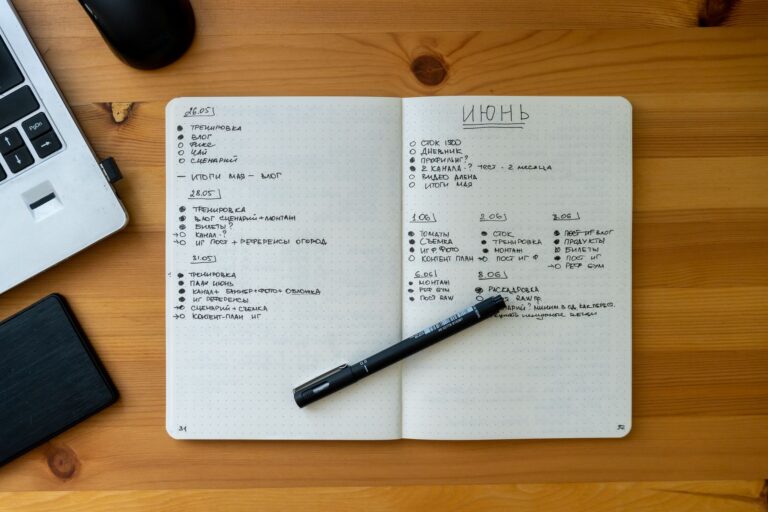 26.05
ТРЕНИРОВКА
ВЛОГ
ЧАЙ
СЦЕНАРИЙ
— ИТОГИ МАЯ — ВЛОГ
28.05
ТРЕНИРОВКА
ВЛОГ СЦЕНАРИЙ + МОНТАЖ
БИЛЕТЫ?
КАНАЛ - ?
ИГ ПОСТ + РЕФЕРЕНСЫ ОГОРОД
31.05
ТРЕНИРОВКА
ПАЛИ ИЮНЬ
КАНАЛ + БАННЕР + ФОТО + ОБЛОЖКА
ИГ РЕФЕРЕНСЫ
СЦЕНАРИЙ + СЪЕМКА
КОНТЕНТ-ПЛАН ИГ
31
ИЮНЬ
СТОК 1500
ДНЕВНИК
ПРОФИЛЬ ИГ?
2 КАНАЛА - ? ТЕСТ - 2 МЕСЯЦА
ВИДЕО
ИТОГИ МАЯ
1.06
ТОМАТЫ
СЪЕМКА
ИГ ФОТО
КОНТЕНТ ПЛАН
2.06
СТОК
ТРЕНИРОВКА
МОНТАЖ
ПОСТ ИГ Ф
3.06
ПОСТ ИГ ВЛОГ
ПРОДУКТЫ
БИЛЕТЫ
ПОСТ ИГ
РЕФ GYM
6.06
МОНТАЖ
РЕФ GYM
ПОСТ RAW
8.06
РАСКАДРОВКА
RAW Ф.
32
PgUp
PgDn